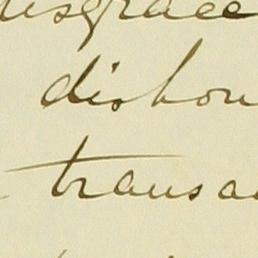 disgrace
dishon
transa